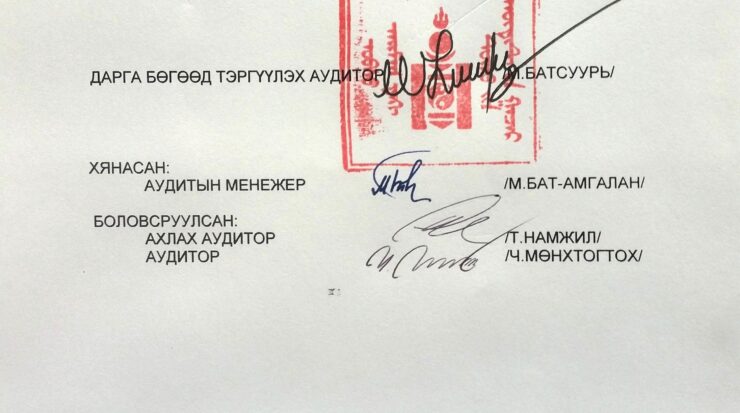 ДАРГА БӨГӨӨД ТЭРГҮҮЛЭХ АУДИТОР /М.БАТСУУРЬ/
ХЯНАСАН:
АУДИТЫН МЕНЕЖЕР /М.БАТ-АМГАЛАН/
БОЛОВСРУУЛСАН:
АХЛАХ АУДИТОР /Т.НАМЖИЛ/
АУДИТОР /Ч.МӨНХТОГТОХ/